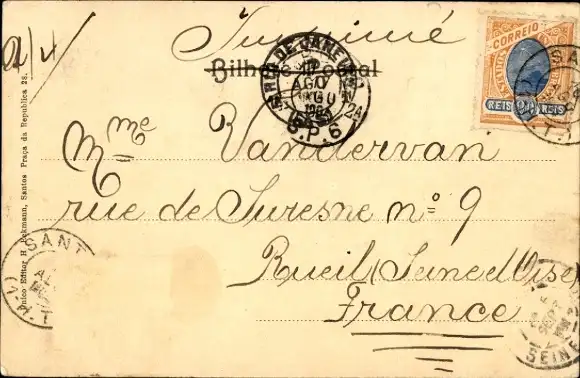 Imprimé
Bilhete Postal
CORREIO
REIS
REIS
RIO DE JANEIRO
AGO
S.P.6
Mme Vandervan
rue de Suresne no 9
Rueil (Seine d'Oise)
France
SANT
SEINE
Unico Editor H. Eckmann, Santos Praça da Republica 28.